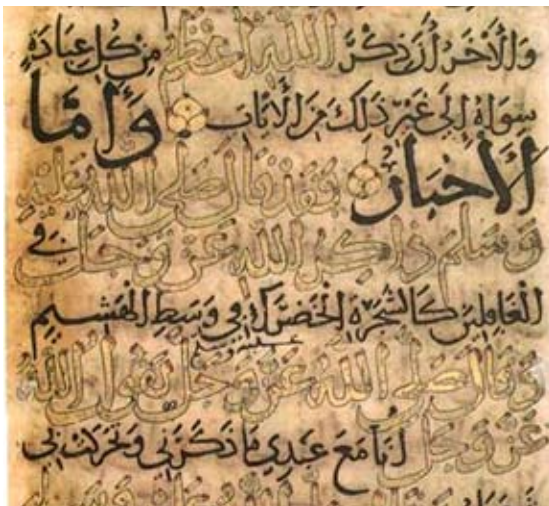 وَالْآخَرُ أَنَّ ذِكْرَ اللَّهِ أَعْظَمُ مِنْ كُلِّ عِبَادَةٍ
سِوَاهُ إِلَى غَيْرِ ذَلِكَ مِنَ الْآيَاتِ وَأَمَّا
الْأَخْبَارُ فَقَدْ قَالَ صَلَّى اللَّهُ عَلَيْهِ
وَسَلَّمَ ذَاكِرُ اللَّهِ عَزَّ وَجَلَّ فِي
الْغَافِلِينَ كَالشَّجَرَةِ الْخَضْرَاءِ فِي وَسَطِ الْهَشِيمِ
عليه وسلم
وَقَالَ صَلَّى اللَّهُ عَزَّ وَجَلَّ يَقُولُ اللَّهُ
عَزَّ وَجَلَّ أَنَا مَعَ عَبْدِي مَا ذَكَرَنِي وَتَحَرَّكَتْ بِي